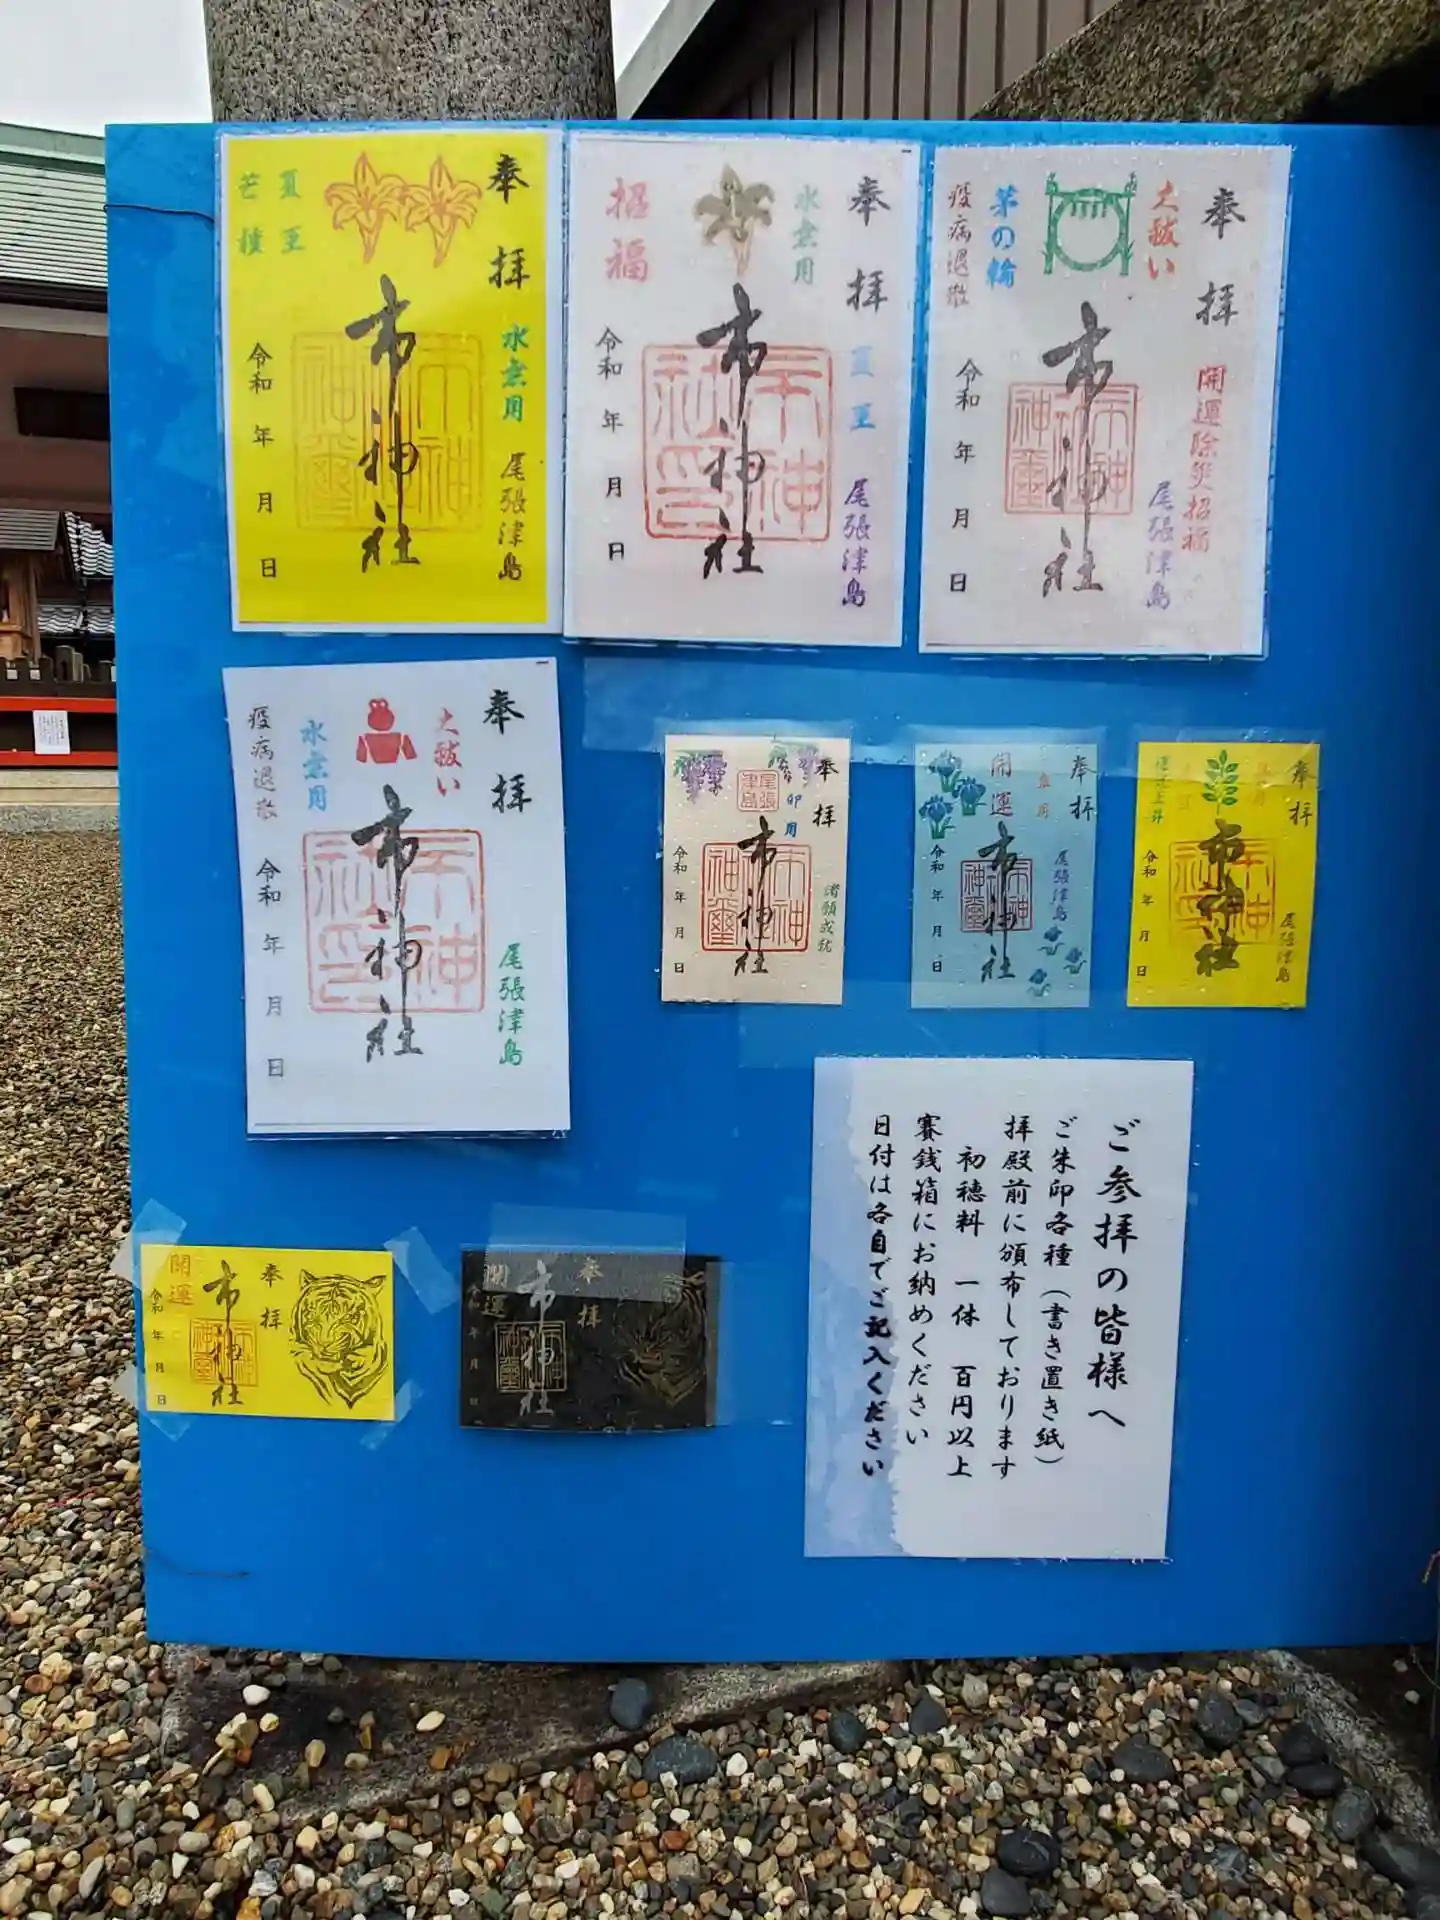 奉拝
水無月
尾張津島
市神社
夏至
芒種
令和 年 月 日
奉拝
夏至
尾張津島
水無月
市神社
招福
令和 年 月 日
奉拝
開運除災招福
尾張津島
大祓い
市神社
茅の輪
疫病退散
令和 年 月 日
奉拝
尾張津島
大祓い
市神社
水無月
疫病退散
令和 年 月 日
奉拝
諸願成就
卯月
尾張津島
市神社
令和 年 月 日
奉拝
尾張津島
開運
市神社
令和 年 月 日
奉拝
尾張津島
市神社
令和 年 月 日
奉拝
市神社
開運
令和 年 月 日
奉拝
市神社
開運
令和 年 月 日
ご参拝の皆様へ
ご朱印各種(書き置き紙)
拝殿前に頒布しております
初穂料 一体 百円以上
賽銭箱にお納めください
日付は各自でご記入ください